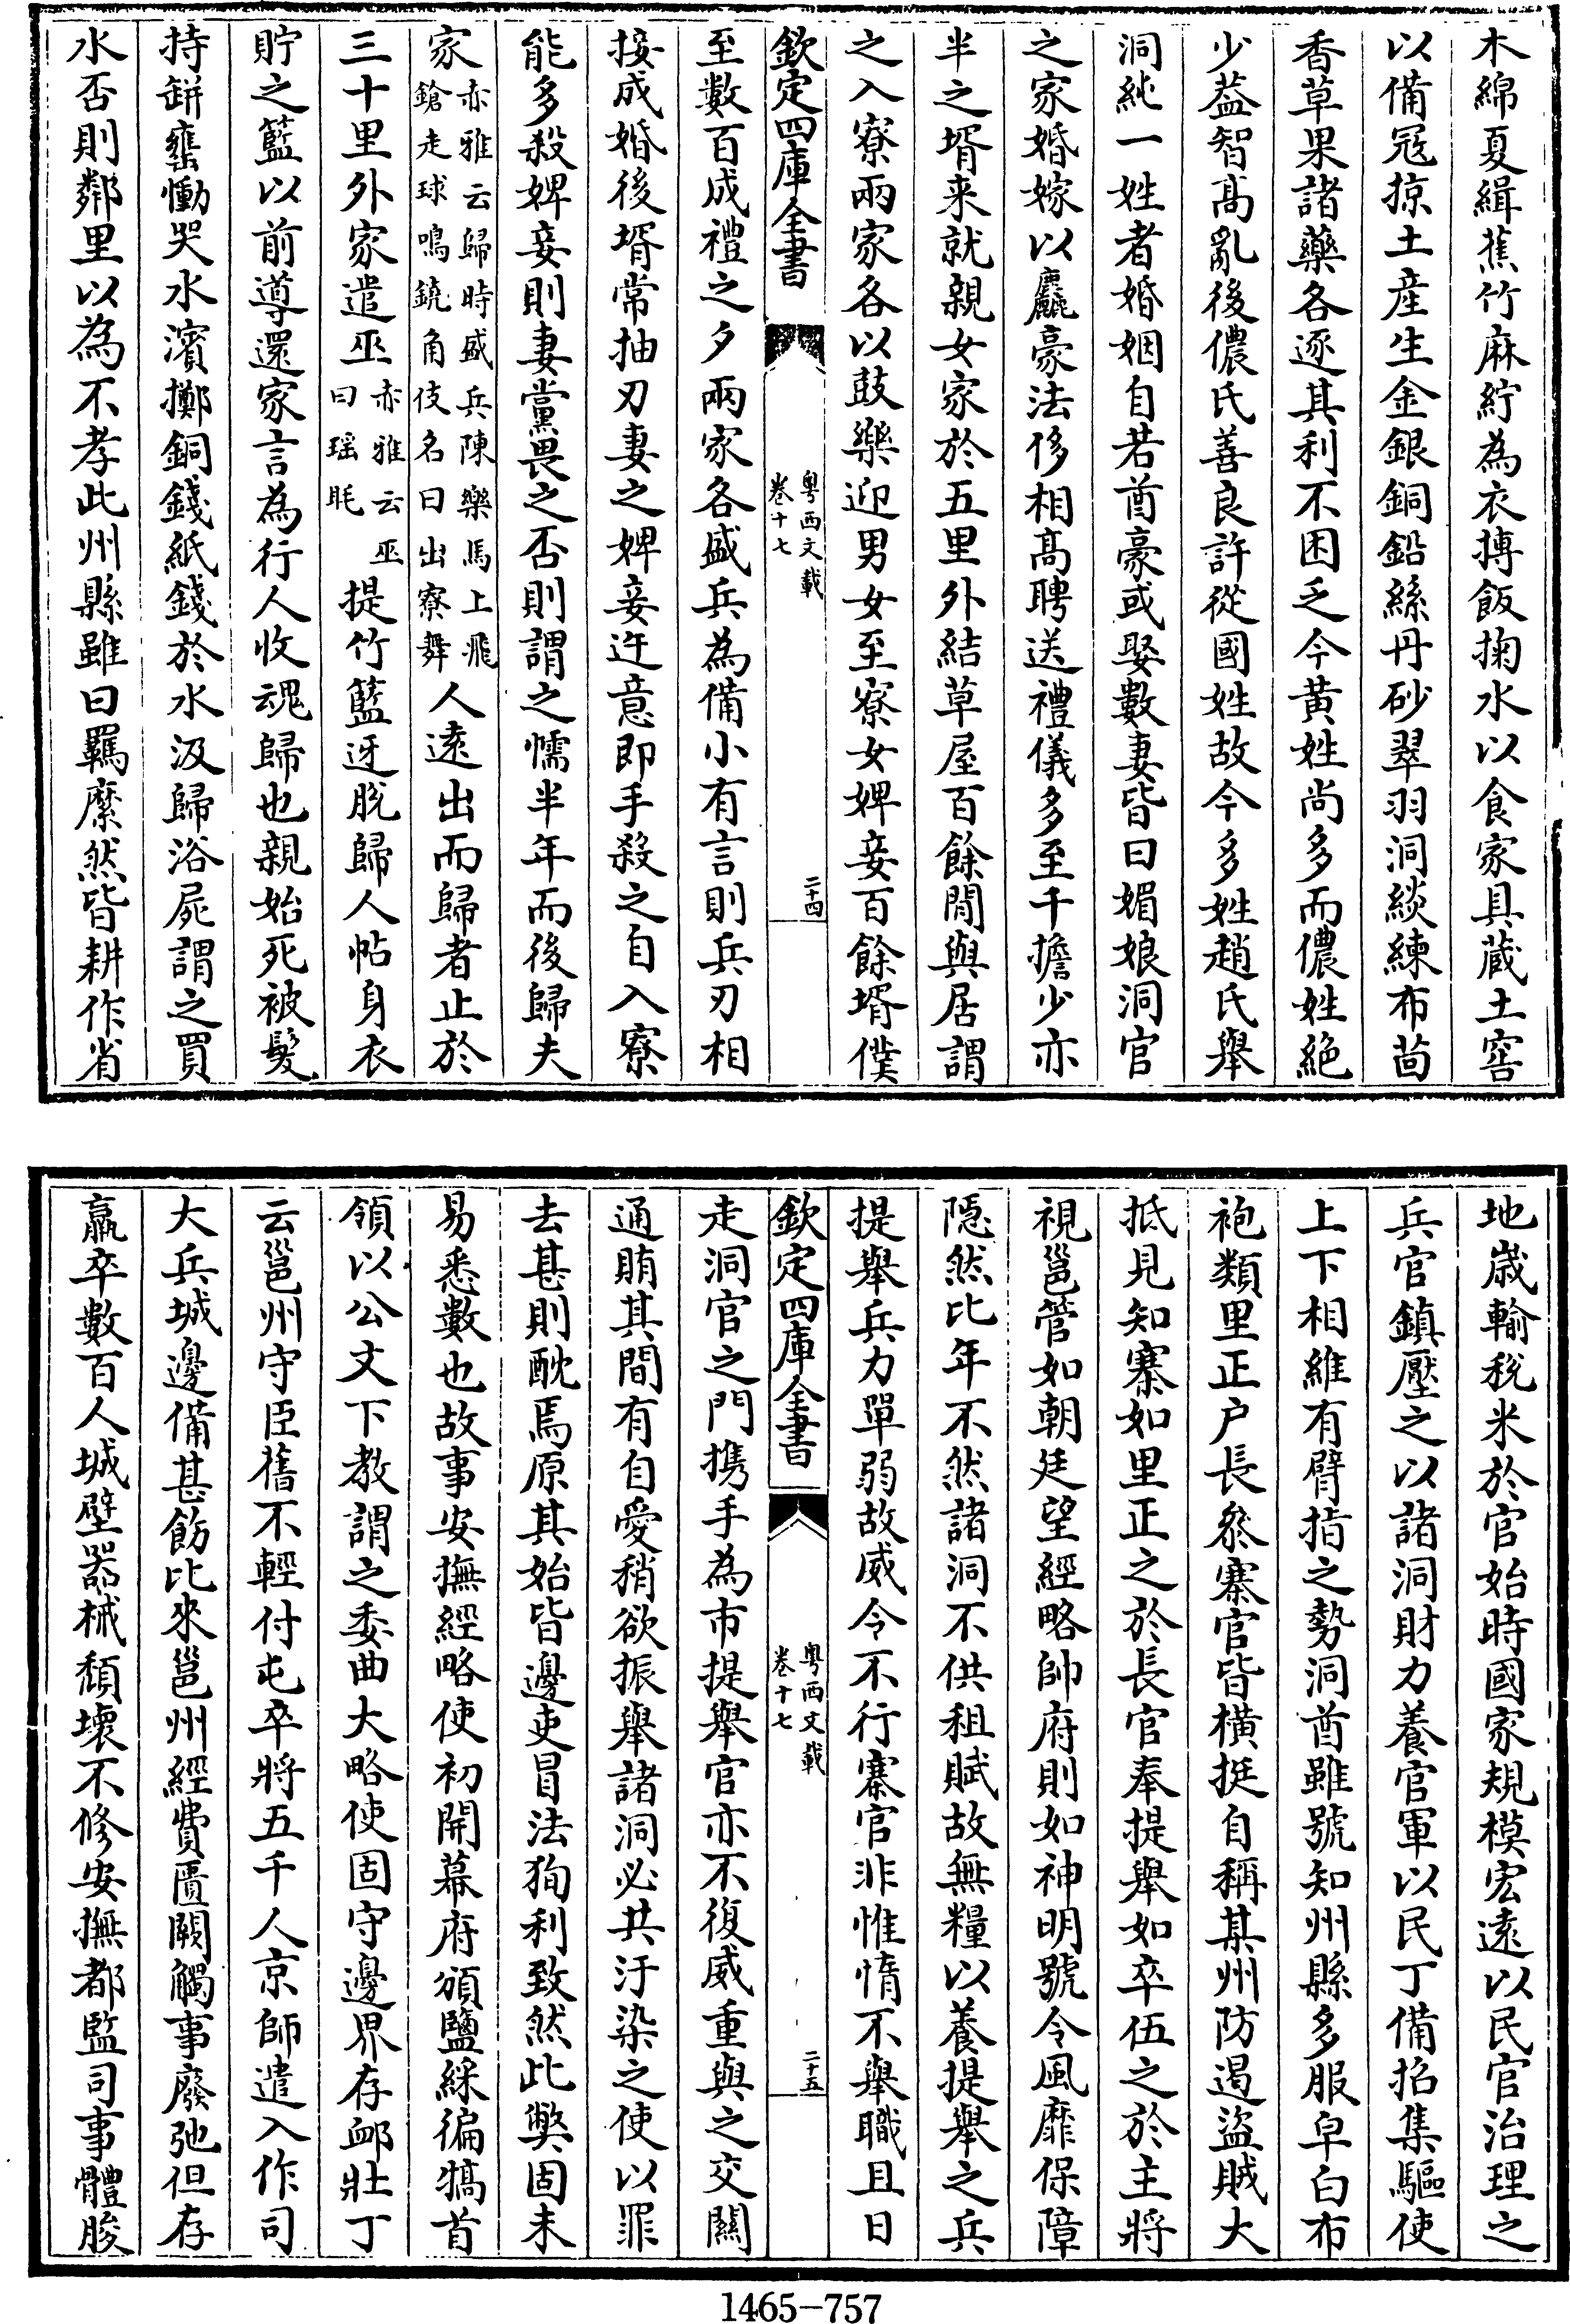 木綿夏緝蕉竹麻紵為衣摶飯掬水以食家具藏土窖
以備冦掠土産生金銀銅鉛絲丹砂翠羽洞緂練布茴
香草果諸藥各逐其利不困乏今黄姓尚多而儂姓絶
少葢智髙亂後儂氏善良許從國姓故今多姓趙氏舉
洞純一姓者婚姻自若酋豪或娶數妻皆曰媚娘洞官
之家婚嫁以麤豪法侈相髙聘送禮儀多至千擔少亦
半之壻来就親女家於五里外結草屋百餘間與居謂
之入寮兩家各以鼓樂迎男女至寮女婢妾百餘壻僕
欽定四庫全書
粤西文載
卷十七
二十四
至數百成禮之夕兩家各盛兵為備小有言則兵刃相
接成婚後壻常抽刃妻之婢妾迕意即手殺之自入寮
能多殺婢妾則妻黨畏之否則謂之懦半年而後歸夫
家赤雅云歸時盛兵陳樂馬上飛鎗走球鳴鐃角伎名曰出寮舞人遠出而歸者止於
三十里外家遣巫赤雅云巫曰瑶眊提竹籃迓脱歸人帖身衣
貯之籃以前導還家言為行人收魂歸也親始死被髮
持缾罋慟哭水濱擲銅錢紙錢於水汲歸浴屍謂之買
水否則鄰里以為不孝此州縣雖曰羈縻然皆耕作省
地嵗輸税米於官始時國家規模宏遠以民官治理之
兵官鎮壓之以諸洞財力養官軍以民丁備招集驅使
上下相維有臂指之勢洞酋雖號知州縣多服皁白布
袍類里正户長叅寨官皆横挺自稱某州防遏盜賊大
抵見知寨如里正之於長官奉提舉如卒伍之於主將
視邕管如朝廷望經略帥府則如神明號令風靡保障
隠然比年不然諸洞不供租賦故無糧以養提舉之兵
提舉兵力單弱故威令不行寨官非惟惰不舉職且日
欽定四庫全書
粤西文載
卷十七
二十五
走洞官之門携手為市提舉官亦不復威重與之交關
通賄其間有自愛稍欲振舉諸洞必共汙染之使以罪
去甚則酖焉原其始皆邊吏冒法狥利致然此獘固未
易悉數也故事安撫經略使初開幕府頒鹽綵徧犒首
領以公文下教謂之委曲大略使固守邊界存䘏壯丁
云邕州守臣舊不輕付屯卒將五千人京師遣入作司
大兵城邊備甚飭比來邕州經費匱闕觸事廢弛但存
羸卒數百人城壁器械頽壊不修安撫都監司事體朘
1465-757